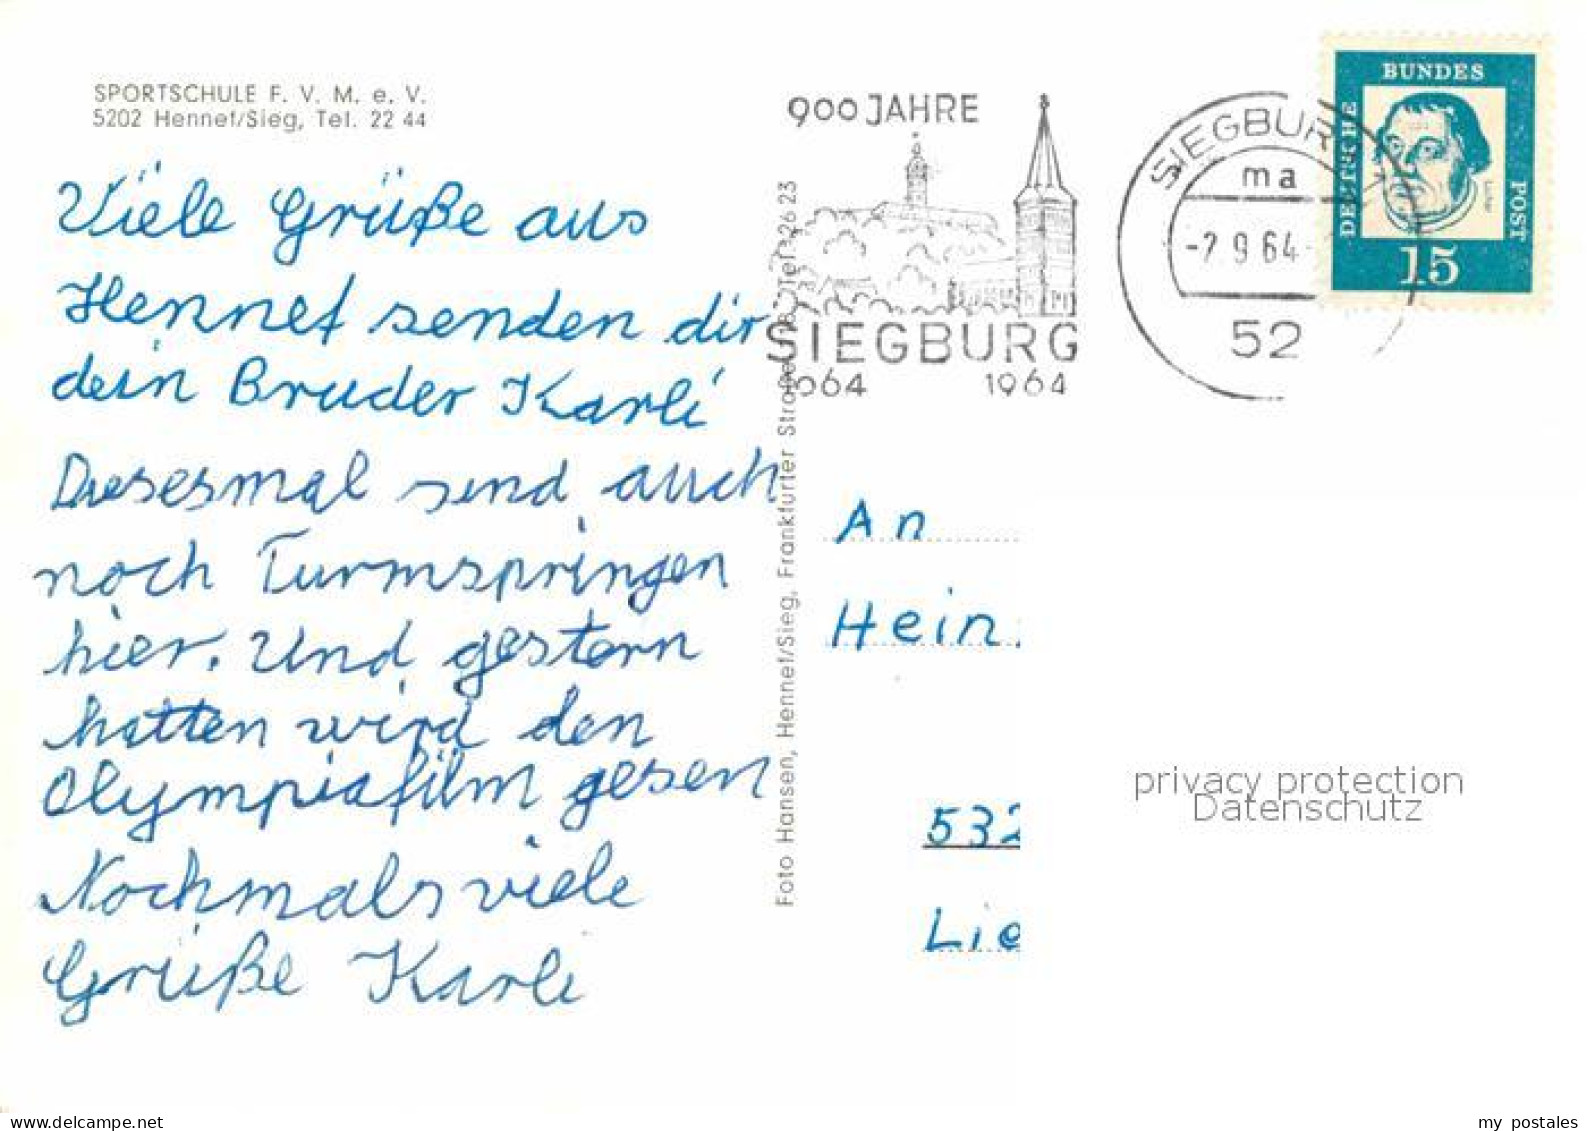 SPORTSCHULE F. V. M. e. V.
5202 Hennef/Sieg, Tel. 22 44
Viele Grüße aus
Hennef senden dir
dein Bruder Karli
Diesesmal sind auch
noch Turmspringen
hier. Und gestern
hatten wird den
Olympiafilm gesen
Nochmals viele
Grüße Karli
Foto Hansen, Hennef/Sieg, Frankfurter Straße 18, Tel. 26 23
900 JAHRE
SIEGBURG
1064 1964
SIEGBURG
ma
-7.9.64-
52
DEUTSCHE
BUNDES
POST
Luther
15
An
Hein
532
Lie
privacy protection
Datenschutz
www.delcampe.net
my postales